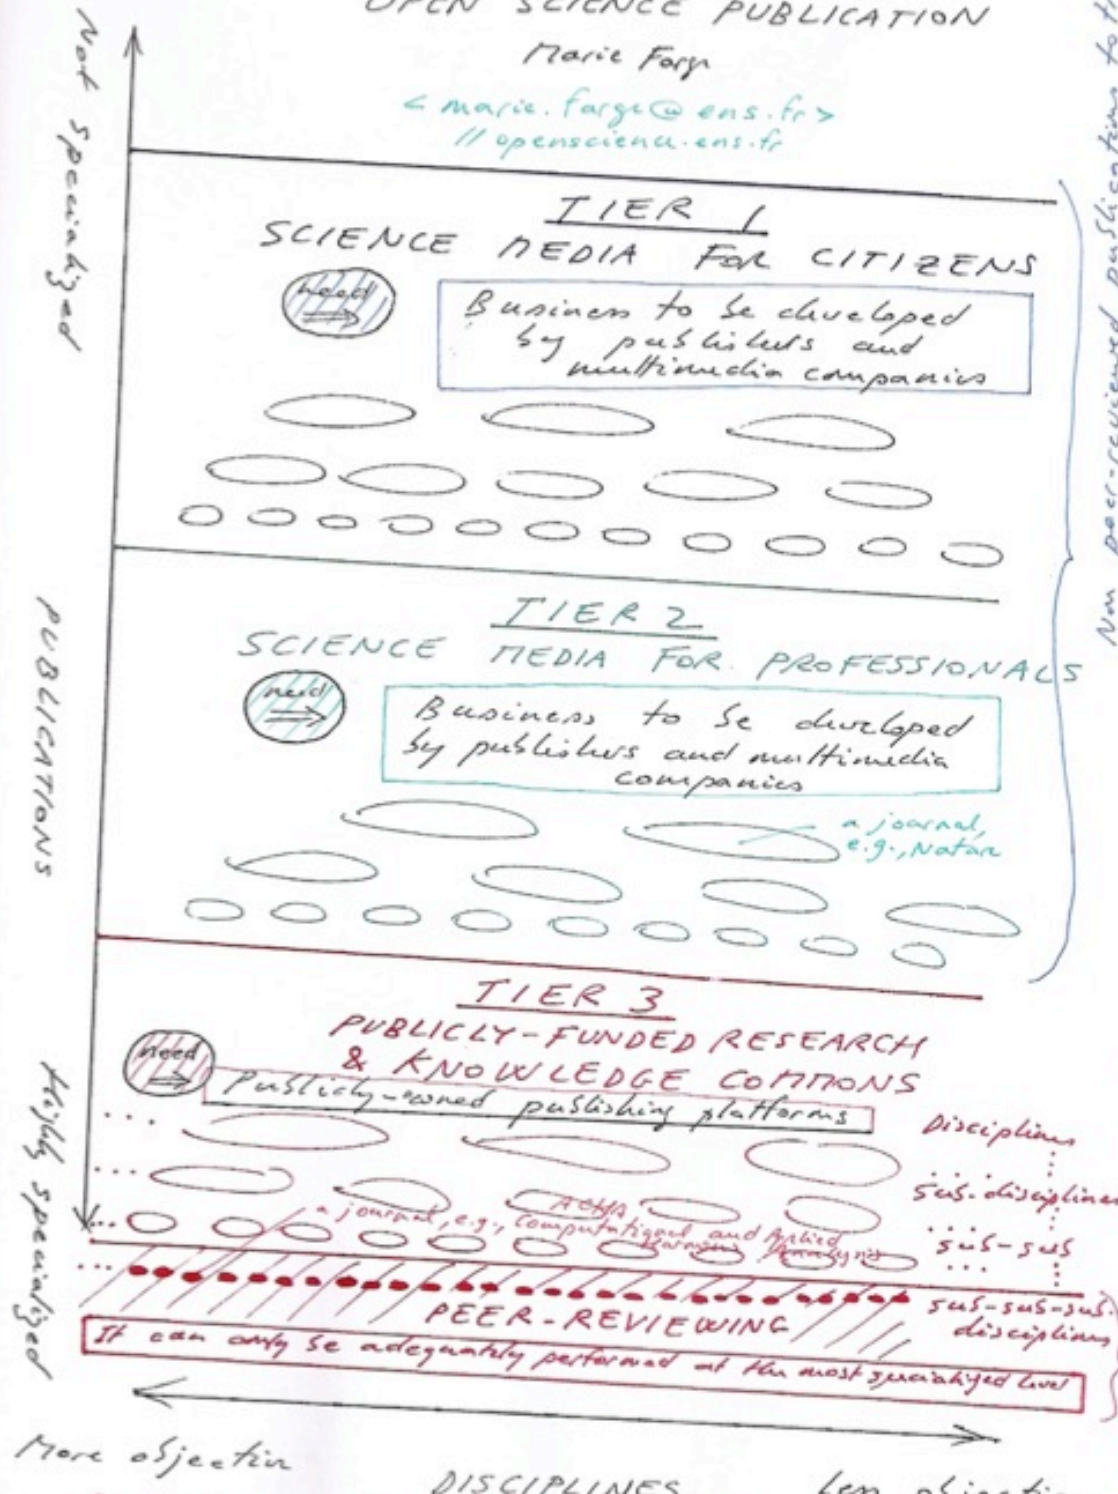 OPEN SCIENCE PUBLICATION
Marie Farge
< marie.farge@ens.fr >
// openscience.ens.fr
Not specialized
PUBLICATIONS
Highly specialized
TIER 1
SCIENCE MEDIA FOR CITIZENS
need
Business to be developed
by publishers and
multimedia companies
Non peer-reviewed publications
TIER 2
SCIENCE MEDIA FOR PROFESSIONALS
need
Business to be developed
by publishers and multimedia
companies
a journal,
e.g., Nature
TIER 3
PUBLICLY-FUNDED RESEARCH
& KNOWLEDGE COMMONS
need
Publicly-owned publishing platforms
Disciplines
sub-disciplines
sub-sub
sub-sub-sub-
disciplines
ACHA
a journal, e.g., Computational and Applied
Harmonic Analysis
PEER-REVIEWING
It can only be adequately performed at the most specialized level
More objective
DISCIPLINES
Less objective